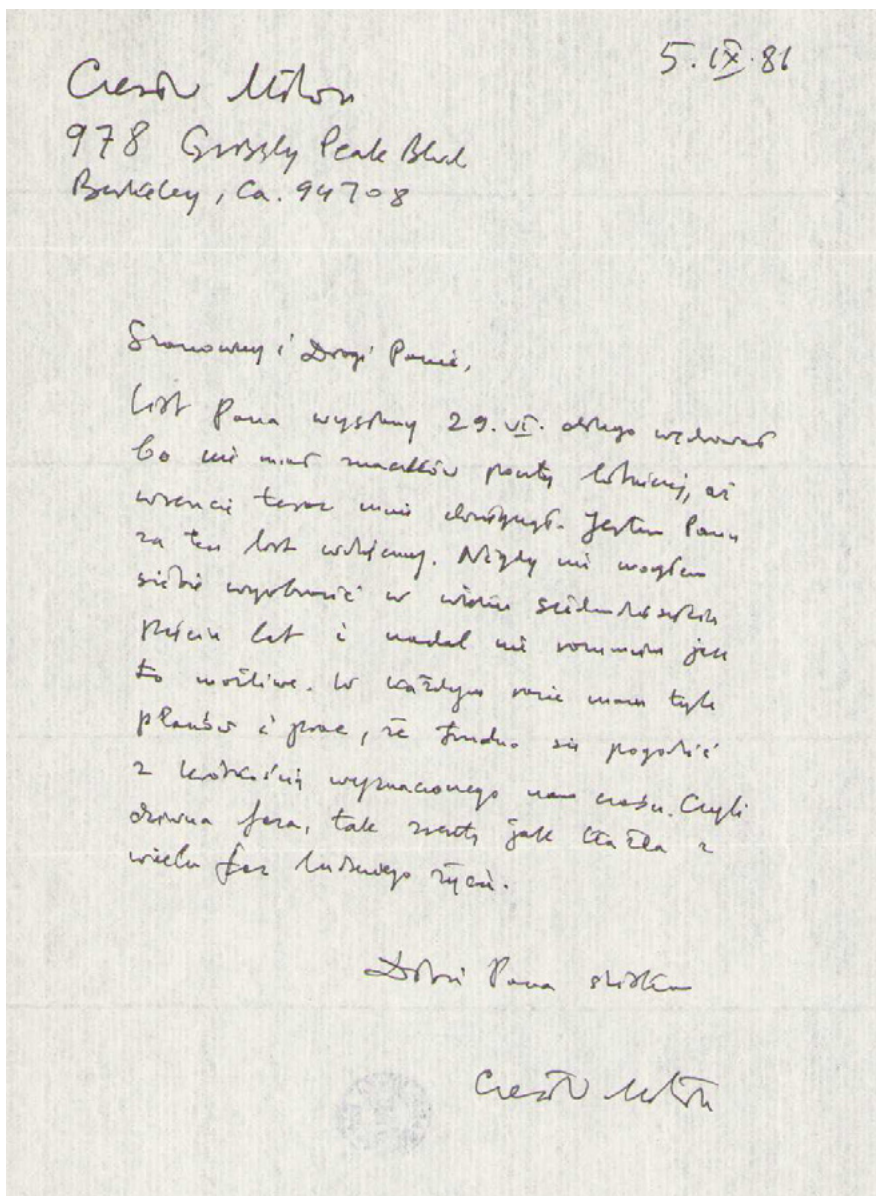 5.IX.81
Czesław Miłosz
978 Grizzly Peak Blvd
Berkeley, Ca. 94708
Szanowny i Drogi Panie,
List Pana wysłany 29.VI. długo wędrował
bo nie miał znaczków poczty lotniczej, aż
wreszcie teraz mnie doścignął. Jestem Panu
za ten list wdzięczny. Nigdy nie mogłem
siebie wyobrazić w wieku siedemdziesięciu
lat i nadal nie rozumiem jak
to możliwe. W każdym razie mam tyle
planów i prac, że trudno się pogodzić
z krótkością wyznaczonego nam czasu. Czyli
dziwna faza, tak zresztą jak każda z
wielu faz ludzkiego życia.
Dłoń Pana ściskam
Czesław Miłosz